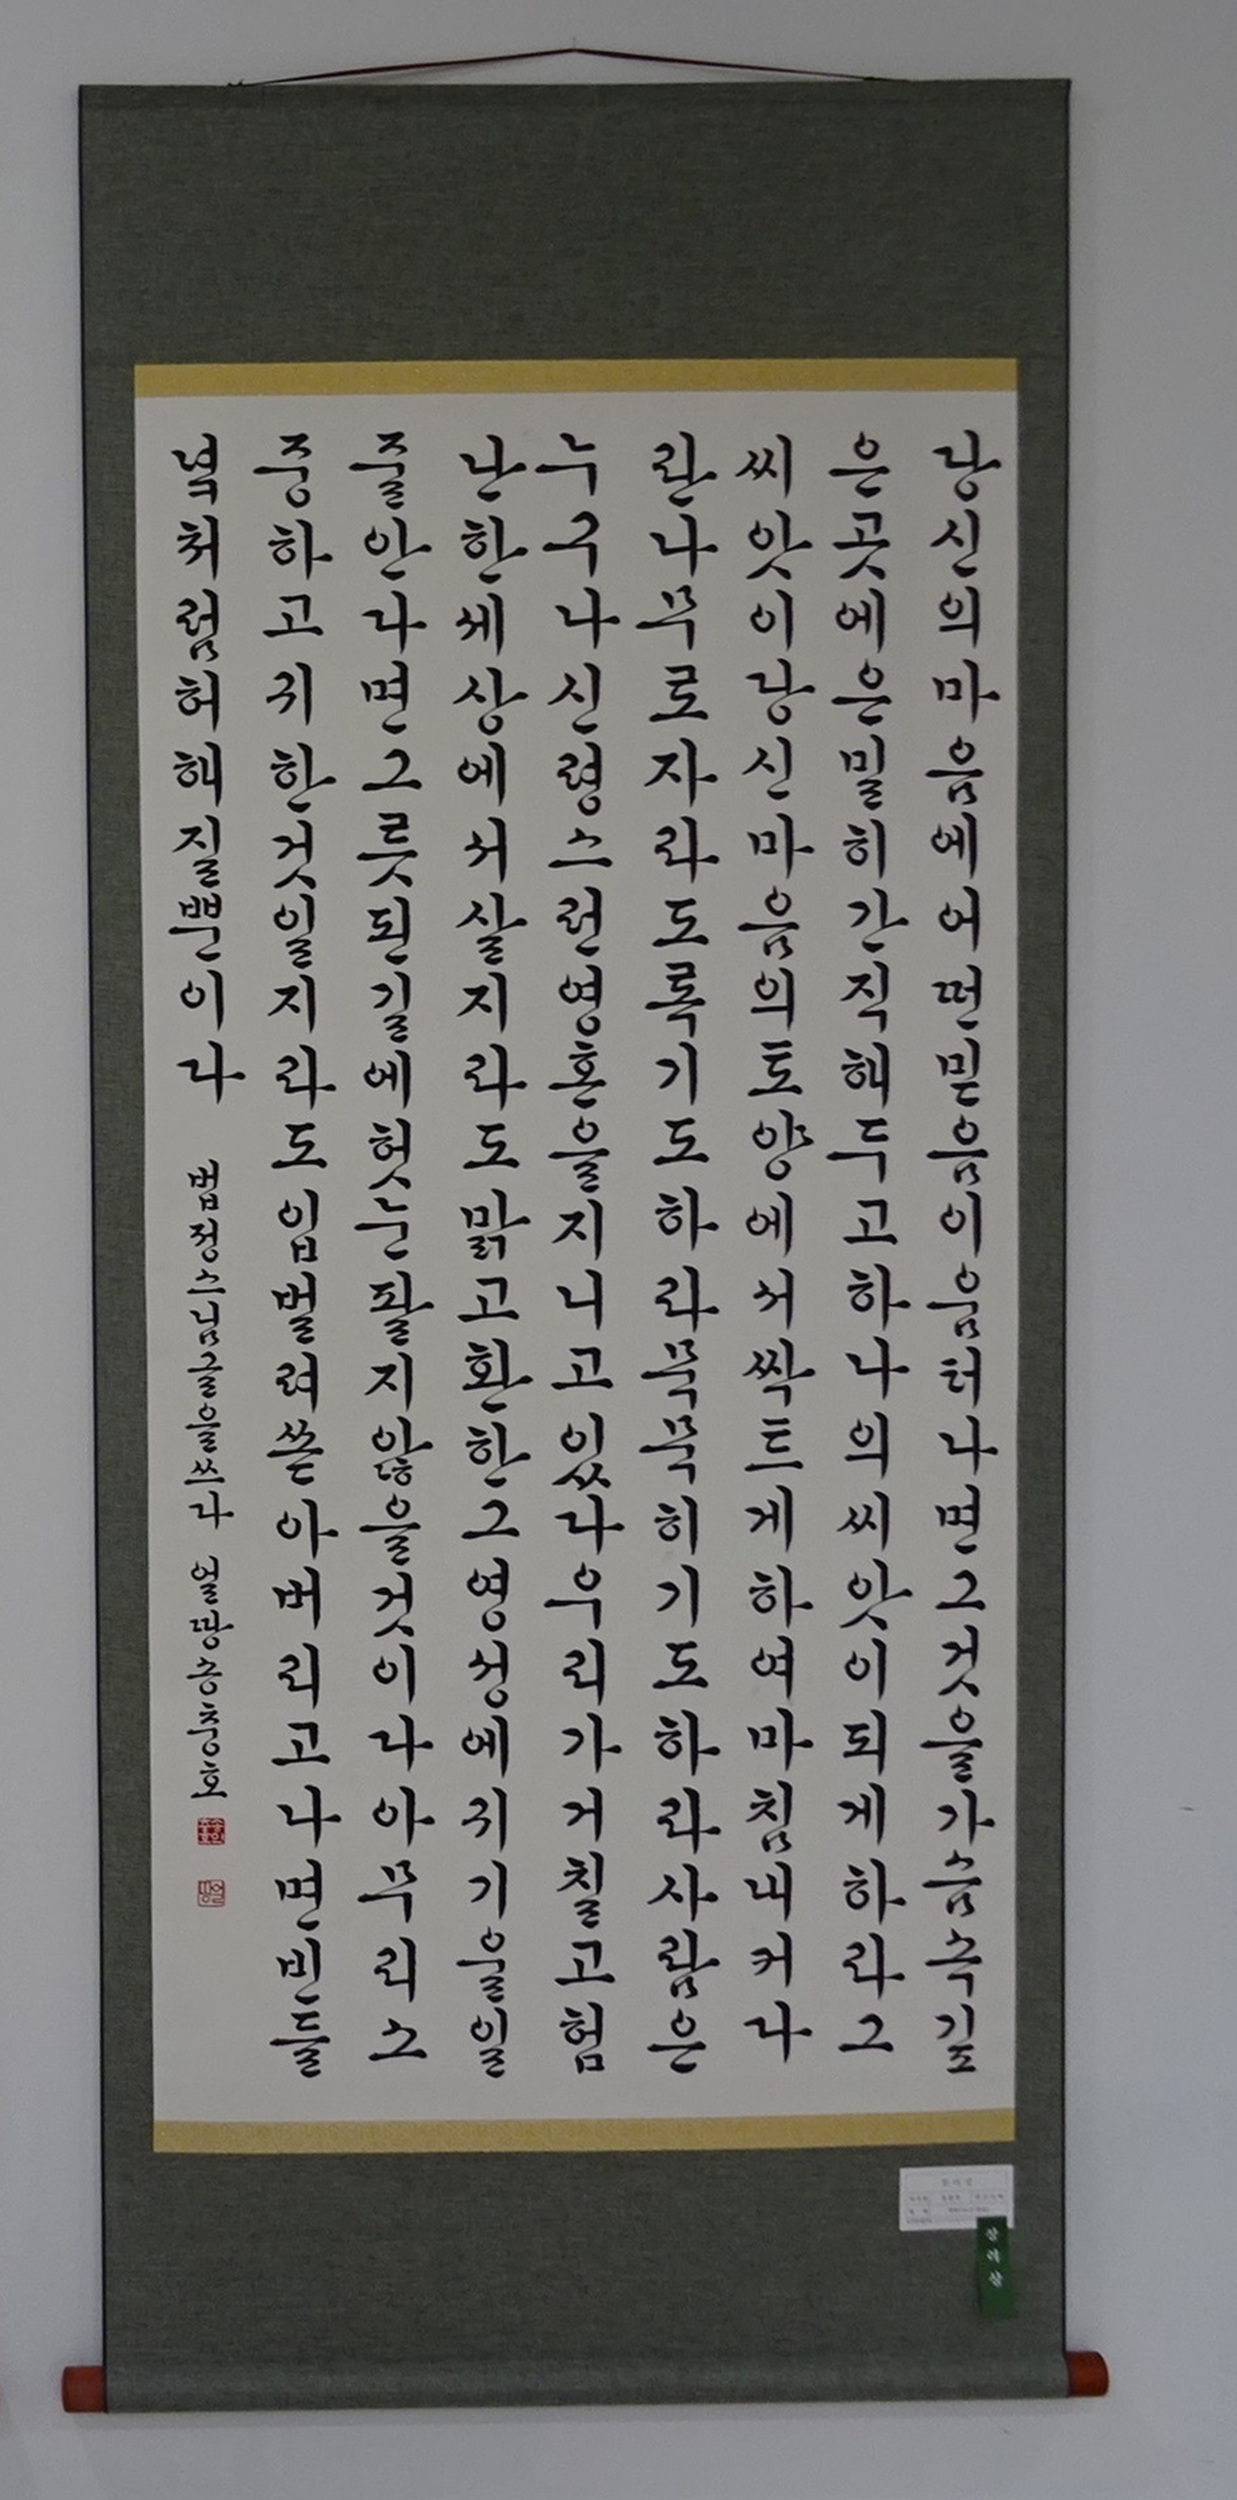 당신의마음에어떤믿음이움터나면그것을가슴속깊
은곳에은밀히간직해두고하나의씨앗이되게하라그
씨앗이당신마음의토양에서싹트게하여마침내커다
란나무로자라도록기도하라묵묵히기도하라사람은
누구나신령스런영혼을지니고있다우리가거칠고험
난한세상에서살지라도맑고환한그영성에귀기울일
줄안다면그릇된길에헛눈팔지않을것이다아무리소
중하고귀한것일지라도입벌려쏟아버리고나면빈들
녘처럼허해질뿐이다
법정스님글을쓰다 얼땅송충호
장려상